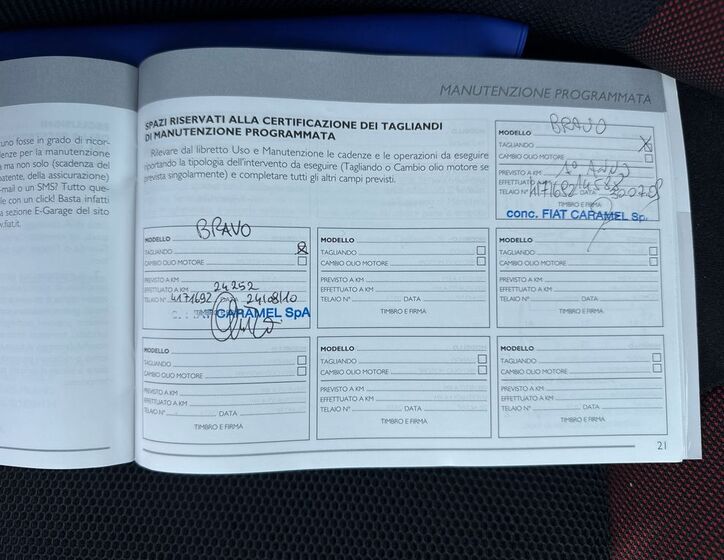 MANUTENZIONE PROGRAMMATA
uno fosse in grado di ricor-
enze per la manutenzione
a ma non solo (scadenza del
patente, della assicurazione)
-mail o un SMS? Tutto que-
le con un click! Basta infatti
a sezione E-Garage del sito
v.fiat.it.
SPAZI RISERVATI ALLA CERTIFICAZIONE DEI TAGLIANDI
DI MANUTENZIONE PROGRAMMATA
Rilevare dal libretto Uso e Manutenzione le cadenze e le operazioni da eseguire
riportando la tipologia dell'intervento da eseguire (Tagliando o Cambio olio motore se
prevista singolarmente) e completare tutti gli altri campi previsti.
MODELLO BRAVO
TAGLIANDO X
CAMBIO OLIO MOTORE
PREVISTO A KM 1° ANNO
EFFETTUATO
TIMBRO E FIRMA
conc. FIAT CARAMEL Sp
MODELLO BRAVO
TAGLIANDO X
CAMBIO OLIO MOTORE
PREVISTO A KM
EFFETTUATO A KM 24252
TELAIO N° 4171692 DATA 24/08/10
FIAT CARAMEL SpA
MODELLO
TAGLIANDO
CAMBIO OLIO MOTORE
PREVISTO A KM
EFFETTUATO A KM
TELAIO N° DATA
TIMBRO E FIRMA
MODELLO
TAGLIANDO
CAMBIO OLIO MOTORE
PREVISTO A KM
EFFETTUATO A KM
TELAIO N° DATA
TIMBRO E FIRMA
MODELLO
TAGLIANDO
CAMBIO OLIO MOTORE
PREVISTO A KM
EFFETTUATO A KM
TELAIO N° DATA
TIMBRO E FIRMA
MODELLO
TAGLIANDO
CAMBIO OLIO MOTORE
PREVISTO A KM
EFFETTUATO A KM
TELAIO N° DATA
TIMBRO E FIRMA
MODELLO
TAGLIANDO
CAMBIO OLIO MOTORE
PREVISTO A KM
EFFETTUATO A KM
TELAIO N° DATA
TIMBRO E FIRMA
21